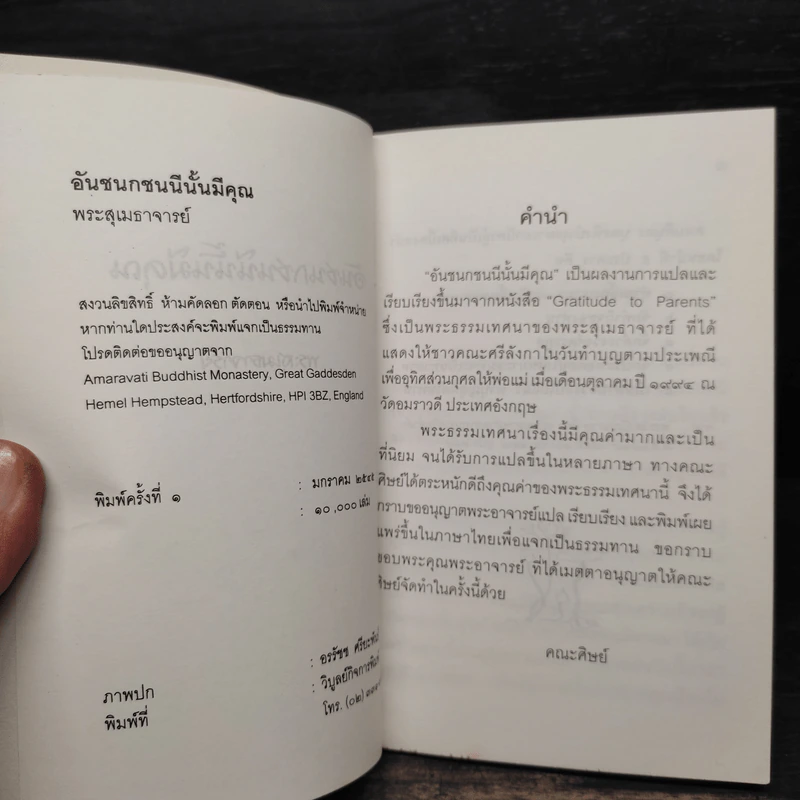 อันชนกชนนีนั้นมีคุณ
พระสุเมธาจารย์
สงวนลิขสิทธิ์ ห้ามคัดลอก ตัดตอน หรือนำไปพิมพ์จำหน่าย
หากท่านใดประสงค์จะพิมพ์แจกเป็นธรรมทาน
โปรดติดต่อขออนุญาตจาก
Amaravati Buddhist Monastery, Great Gaddesden
Hemel Hempstead, Hertfordshire, HPI 3BZ, England
พิมพ์ครั้งที่ ๑ : มกราคม
: ๑๐,๐๐๐ เล่ม
ภาพปก : อรรัชช
พิมพ์ที่ : วิบูลย์กิจการพิมพ์
โทร. (๐๒)
คำนำ
“อันชนกชนนีนั้นมีคุณ” เป็นผลงานการแปลและ
เรียบเรียงขึ้นมาจากหนังสือ “Gratitude to Parents”
ซึ่งเป็นพระธรรมเทศนาของพระสุเมธาจารย์ ที่ได้
แสดงให้ชาวคณะศรีลังกาในวันทำบุญตามประเพณี
เพื่ออุทิศส่วนกุศลให้พ่อแม่ เมื่อเดือนตุลาคม ปี ๑๙๙๔ ณ
วัดอมราวดี ประเทศอังกฤษ
พระธรรมเทศนาเรื่องนี้มีคุณค่ามากและเป็น
ที่นิยม จนได้รับการแปลขึ้นในหลายภาษา ทางคณะ
ศิษย์ได้ตระหนักดีถึงคุณค่าของพระธรรมเทศนานี้ จึงได้
กราบขออนุญาตพระอาจารย์แปล เรียบเรียง และพิมพ์เผย
แพร่ขึ้นในภาษาไทยเพื่อแจกเป็นธรรมทาน ขอกราบ
ขอบพระคุณพระอาจารย์ ที่ได้เมตตาอนุญาตให้คณะ
ศิษย์จัดทำในครั้งนี้ด้วย
คณะศิษย์